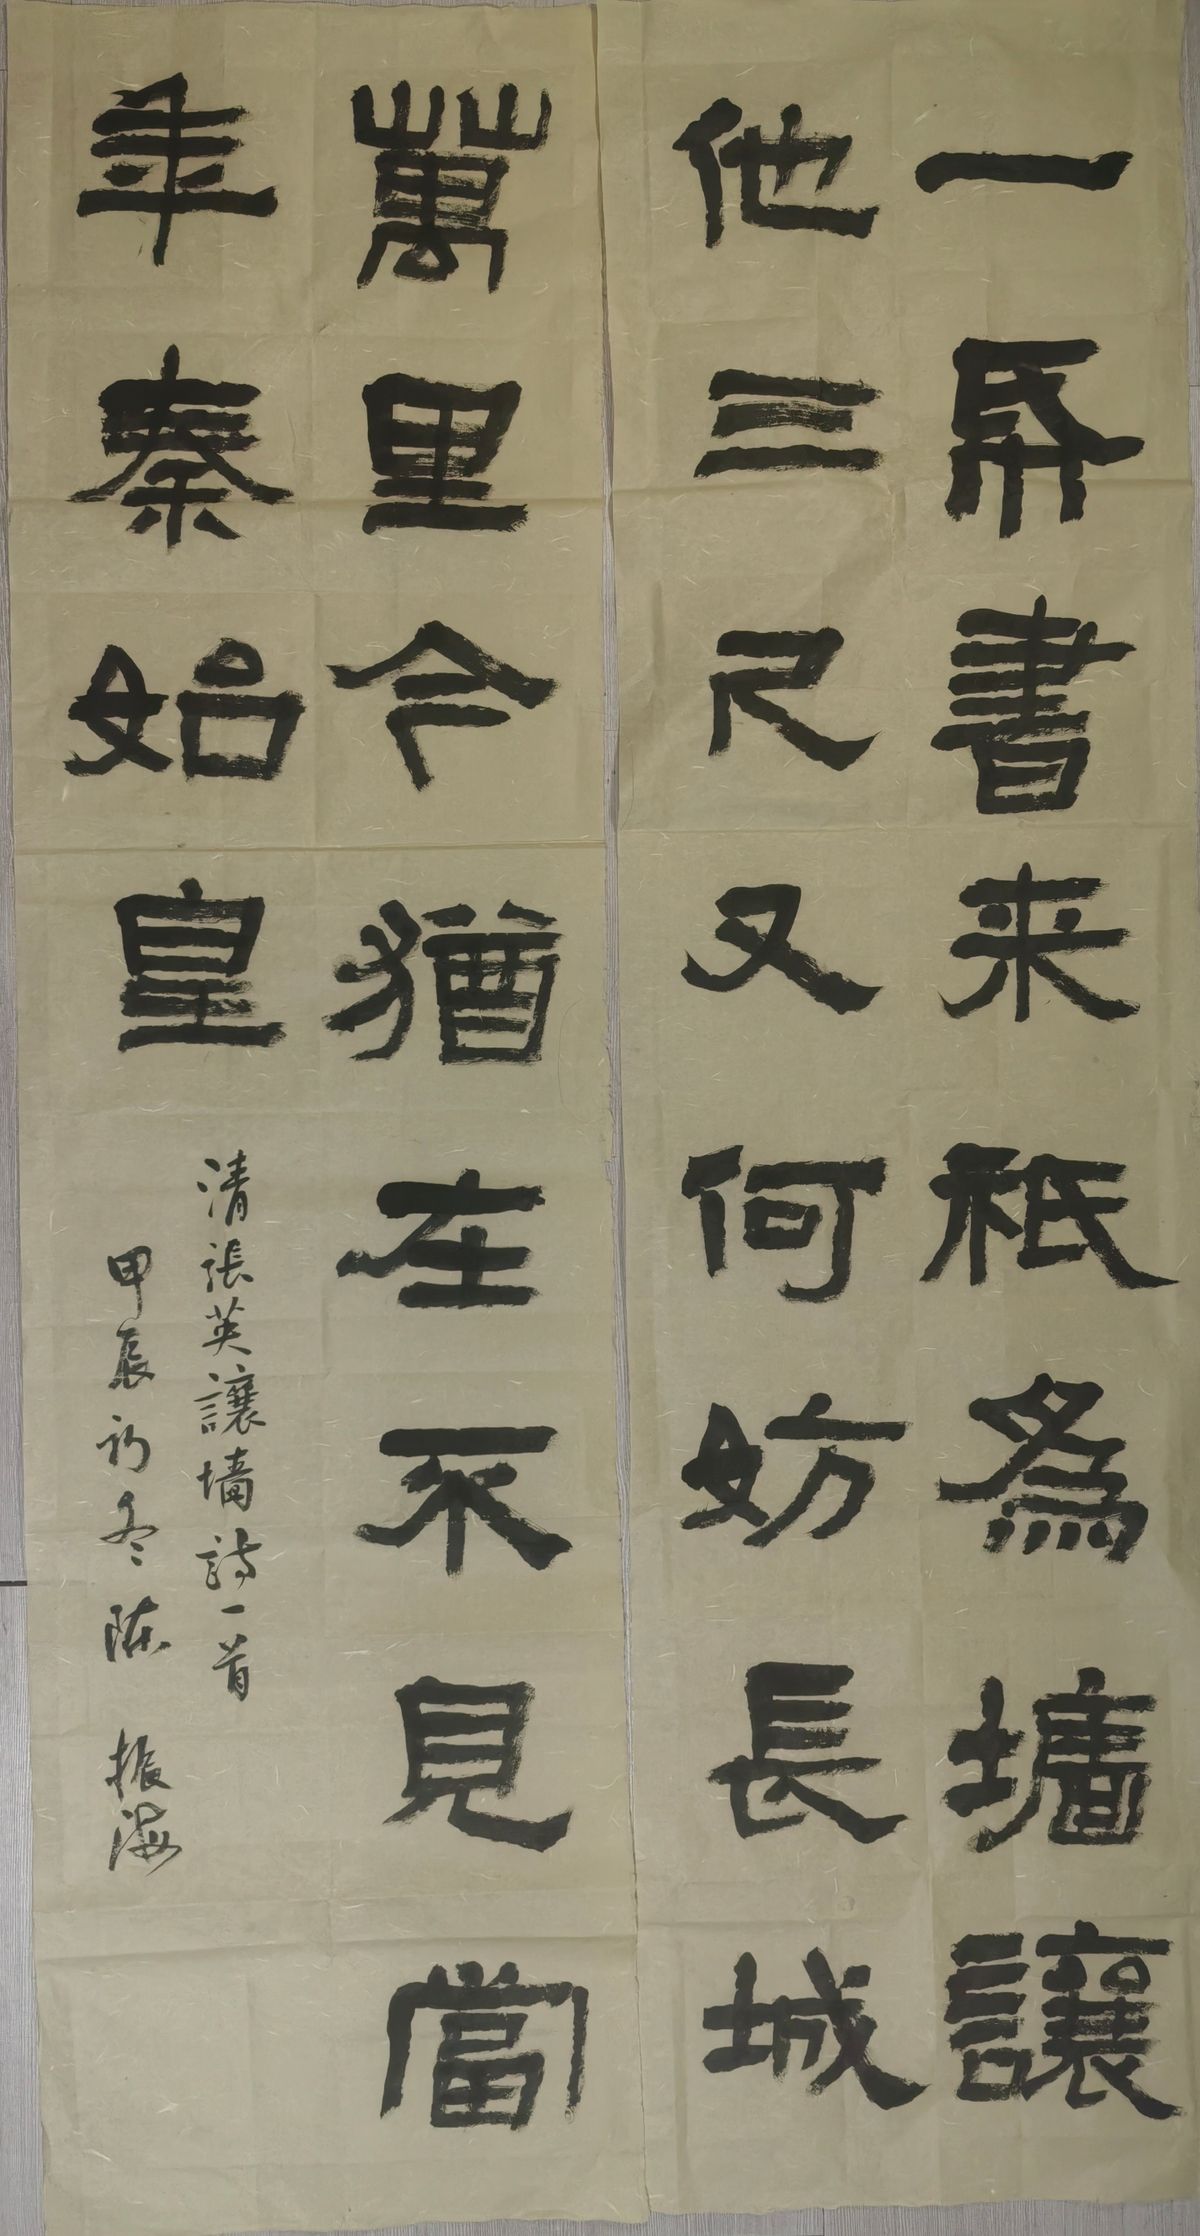 一紙書来衹為墻讓
他三尺又何妨長城
萬里今猶在不見當
年秦始皇
清張英讓墻詩一首
甲辰初冬陈振海